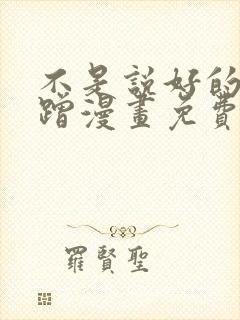 不是説好的
蹭漫畫免費
羅賢聖